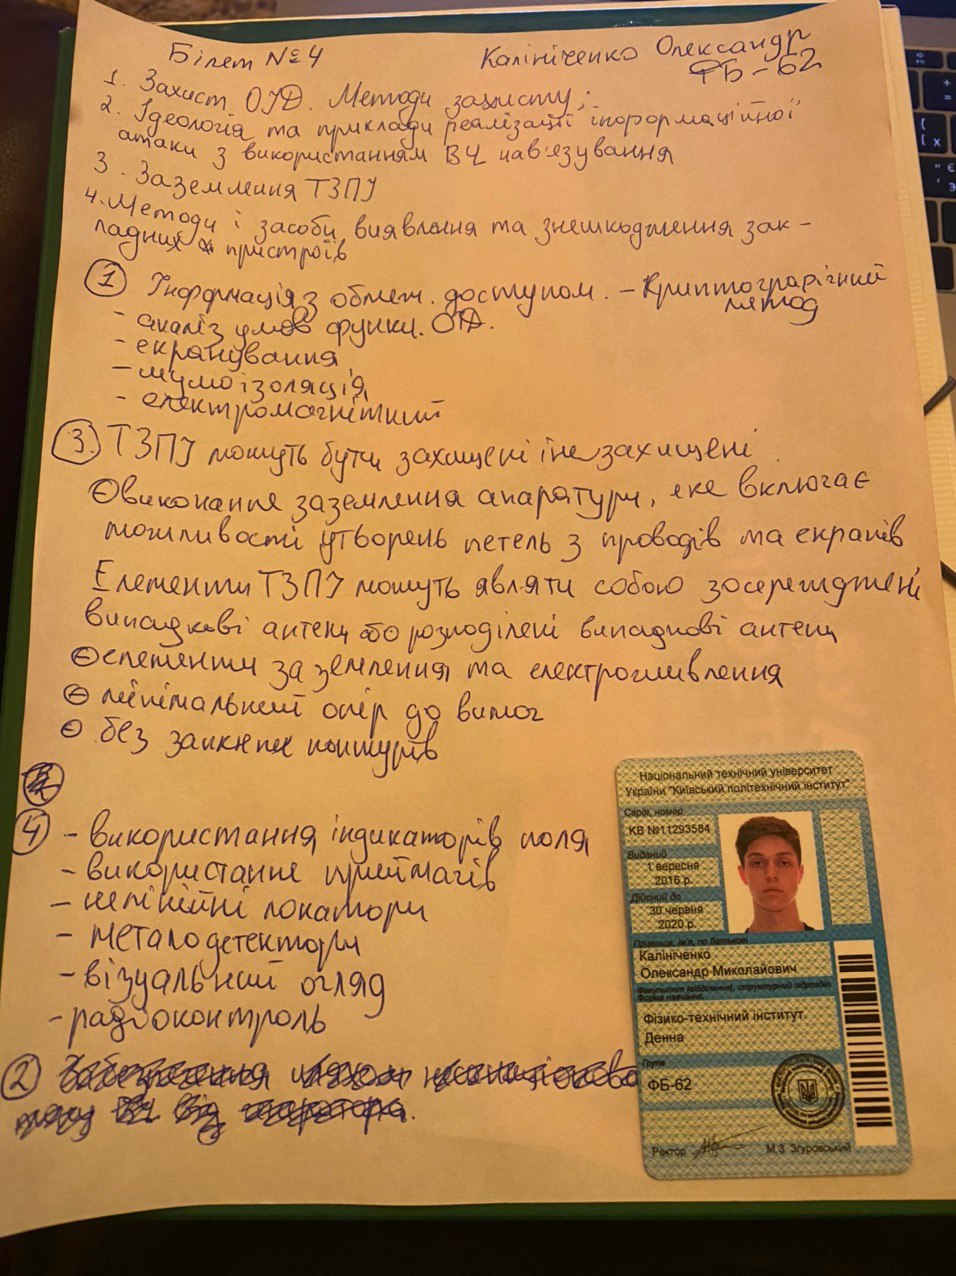 Білет №4
Калініченко Олександр
ФБ-62
1. Захист ОІД. Методи захисту;
2. Ідеологія та приклади реалізації інформаційної
атаки з використанням ВЧ нав'язування
3. Заземлення ТЗПІ
4. Методи і засоби виявлення та знешкодження зак-
ладних пристроїв
1 Інформація з обмеж. доступом. – Криптографічний
метод
- аналіз умов функц. ОІД.
- екранування
- шумоізоляція
- електромагнітний
3. ТЗПІ можуть бути захищені і не захищені
виконання заземлення апаратури, яке включає
можливості утворень петель з проводів та екранів
Елементи ТЗПІ можуть являти собою зосереджені
випадкові антени або розподілені випадкові антени
елементи заземлення та електроживлення
мінімальний опір до вимог
без замкнених контурів
4 - використання індикаторів поля
- використання приймачів
- нелінійні локатори
- металодетектори
- візуальний огляд
- радіоконтроль
2
Національний технічний університет
України "Київський політехнічний інститут"
Серія, номер
КВ №11293584
Виданий
1 вересня
2016 р.
Дійсний до
30 червня
2020 р.
Прізвище, ім'я, по батькові
Калініченко
Олександр Миколайович
Факультет (відділення), структурний підрозділ.
Форма навчання.
Фізико-технічний інститут.
Денна
Група
ФБ-62
Ректор
М.З. Згуровський